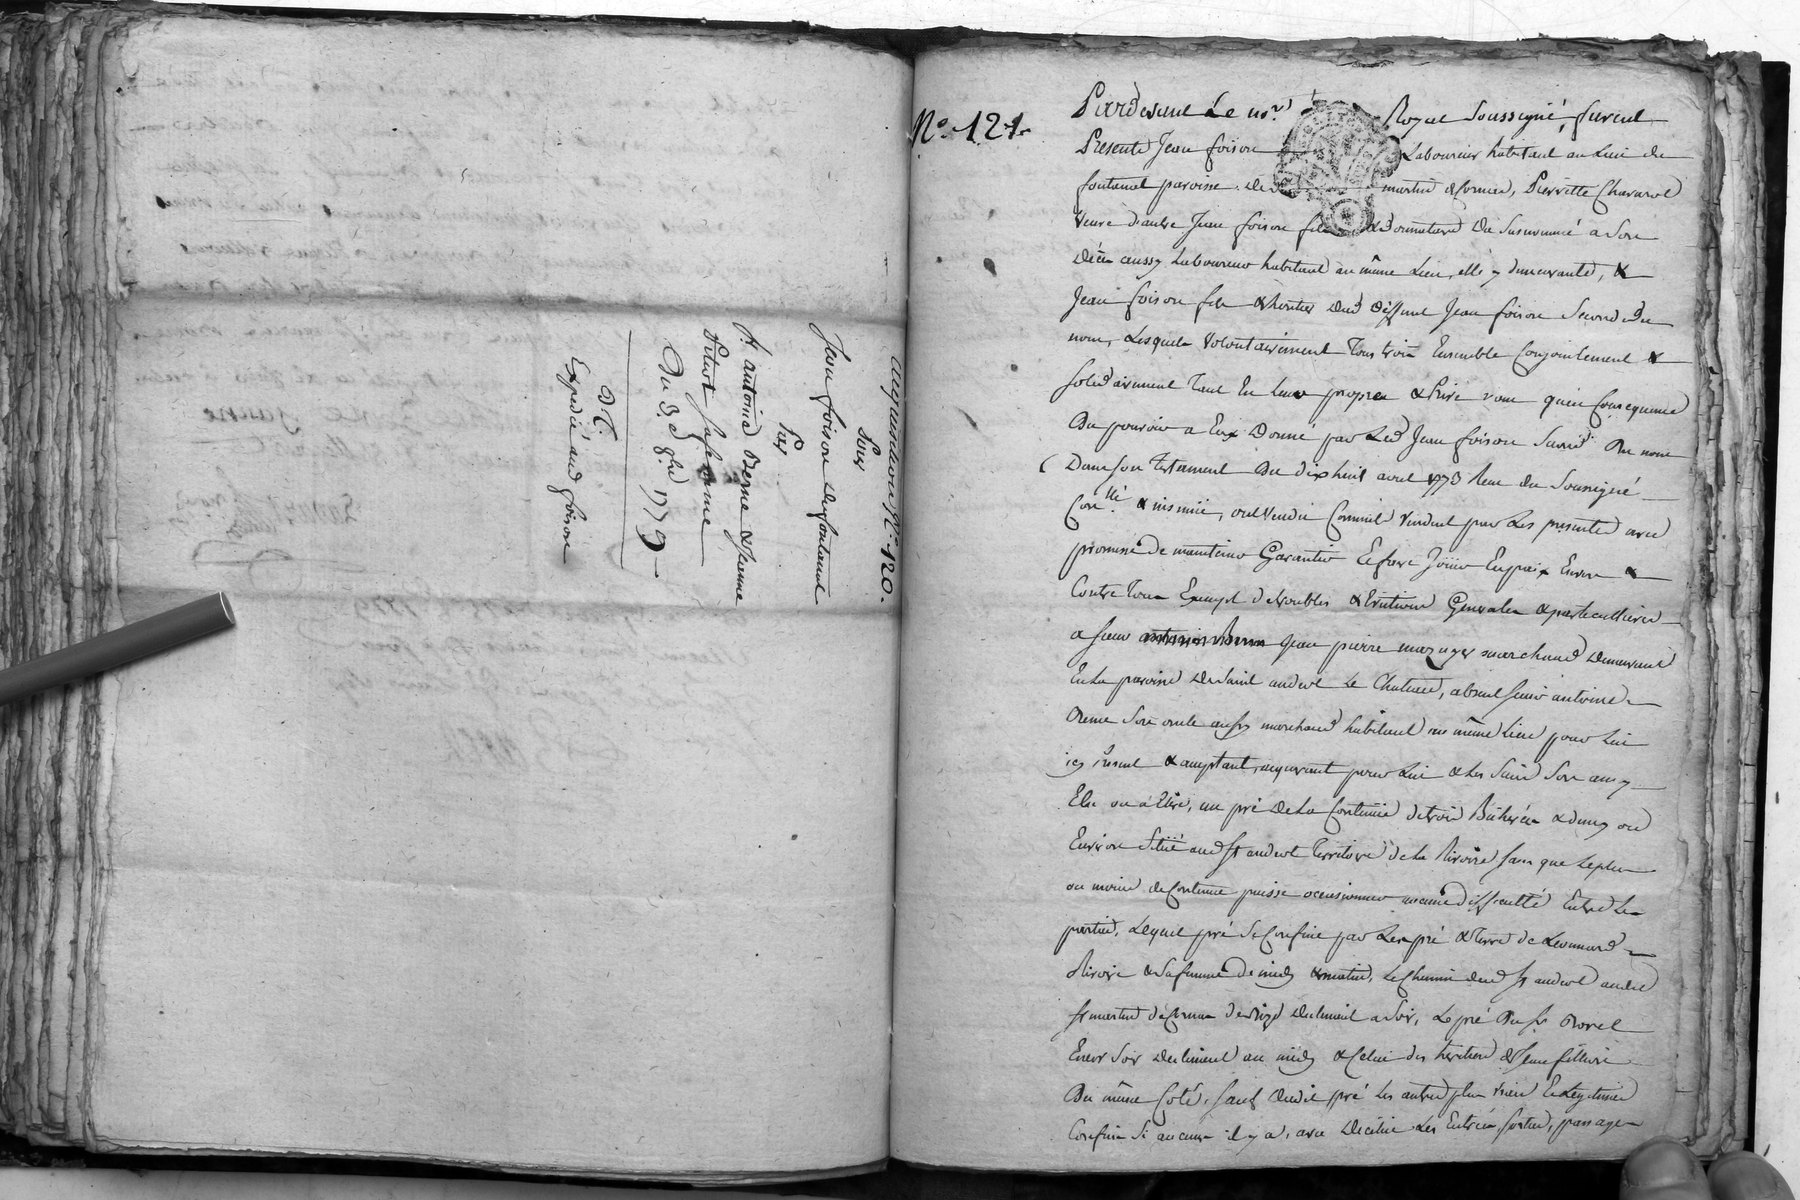 acquisition N.° 120.
Pour
Jean foison de fontanel
Par
Sr. antoine Berne & Jeanne
Petiot sa femme
Du 3.e 9bre 1779
d C.
Expedié aud foison
N.° 121.
Pardevant Le no.re Royal Soussigné, furent
Presents Jean foison Laboureur habitant au Lieu de
fontanel paroisse de martin de cornas, Pierrette Chavarot
Veuve d'autre Jean foison fils & donnataire du susnommé a son
décès aussy Laboureur habitant au même Lieu, elle y demeurante, &
Jean foison fils & heritier dud deffunt Jean foison Second du
nom, Lesquels volontairement tous trois Ensemble Conjointement &
solidairement tant En Leurs propres & Privés noms qu'en Consequence
Du pouvoir a Eux Donné par Led Jean foison Second Du nom
Dans son testament Du dix huit avril 1773 Reçu du Soussigné
Con.llé & insinué, ont vendu Comme ils vendent par Les presentes avec
promesse de maintenir Garantir Et faire Jouir En paix Envers &
Contre tous Exempt de troubles & Evictions Generales & particullieres
a sieur Jean pierre mazuyer marchand demeurant
En La paroisse de Saint andeol Le Chateau, absent sieur antoine
Berne son oncle aussy marchand habitant au même Lieu pour Lui
icy present & acceptant, acquerant pour Lui & Les Siens Son amy
Elu ou à Elire, un pré de La Contenüe de trois Bicherées & demy ou
Environ Situé aud St andeol territoire de La Rivoire sans que Le plus
ou moins de Contenue puisse occasionner aucune difficulté Entre Les
parties, Lequel pré se Confine par Les pré & terre de Leonnard
Rivoire & sa femme de midy & matin, Le Chemin dud St andeol audit
St martin de Cornas de Bize declinant a soir, Le pré du Sr Borel
Encor soir declinant au midy & celui des heritiers de Jean fillion
Du même Coté, sauf dudit pré Les autres plus vrais & Legitimes
Confins si aucuns il y a, avec de celui Les Entrées, sorties, passages